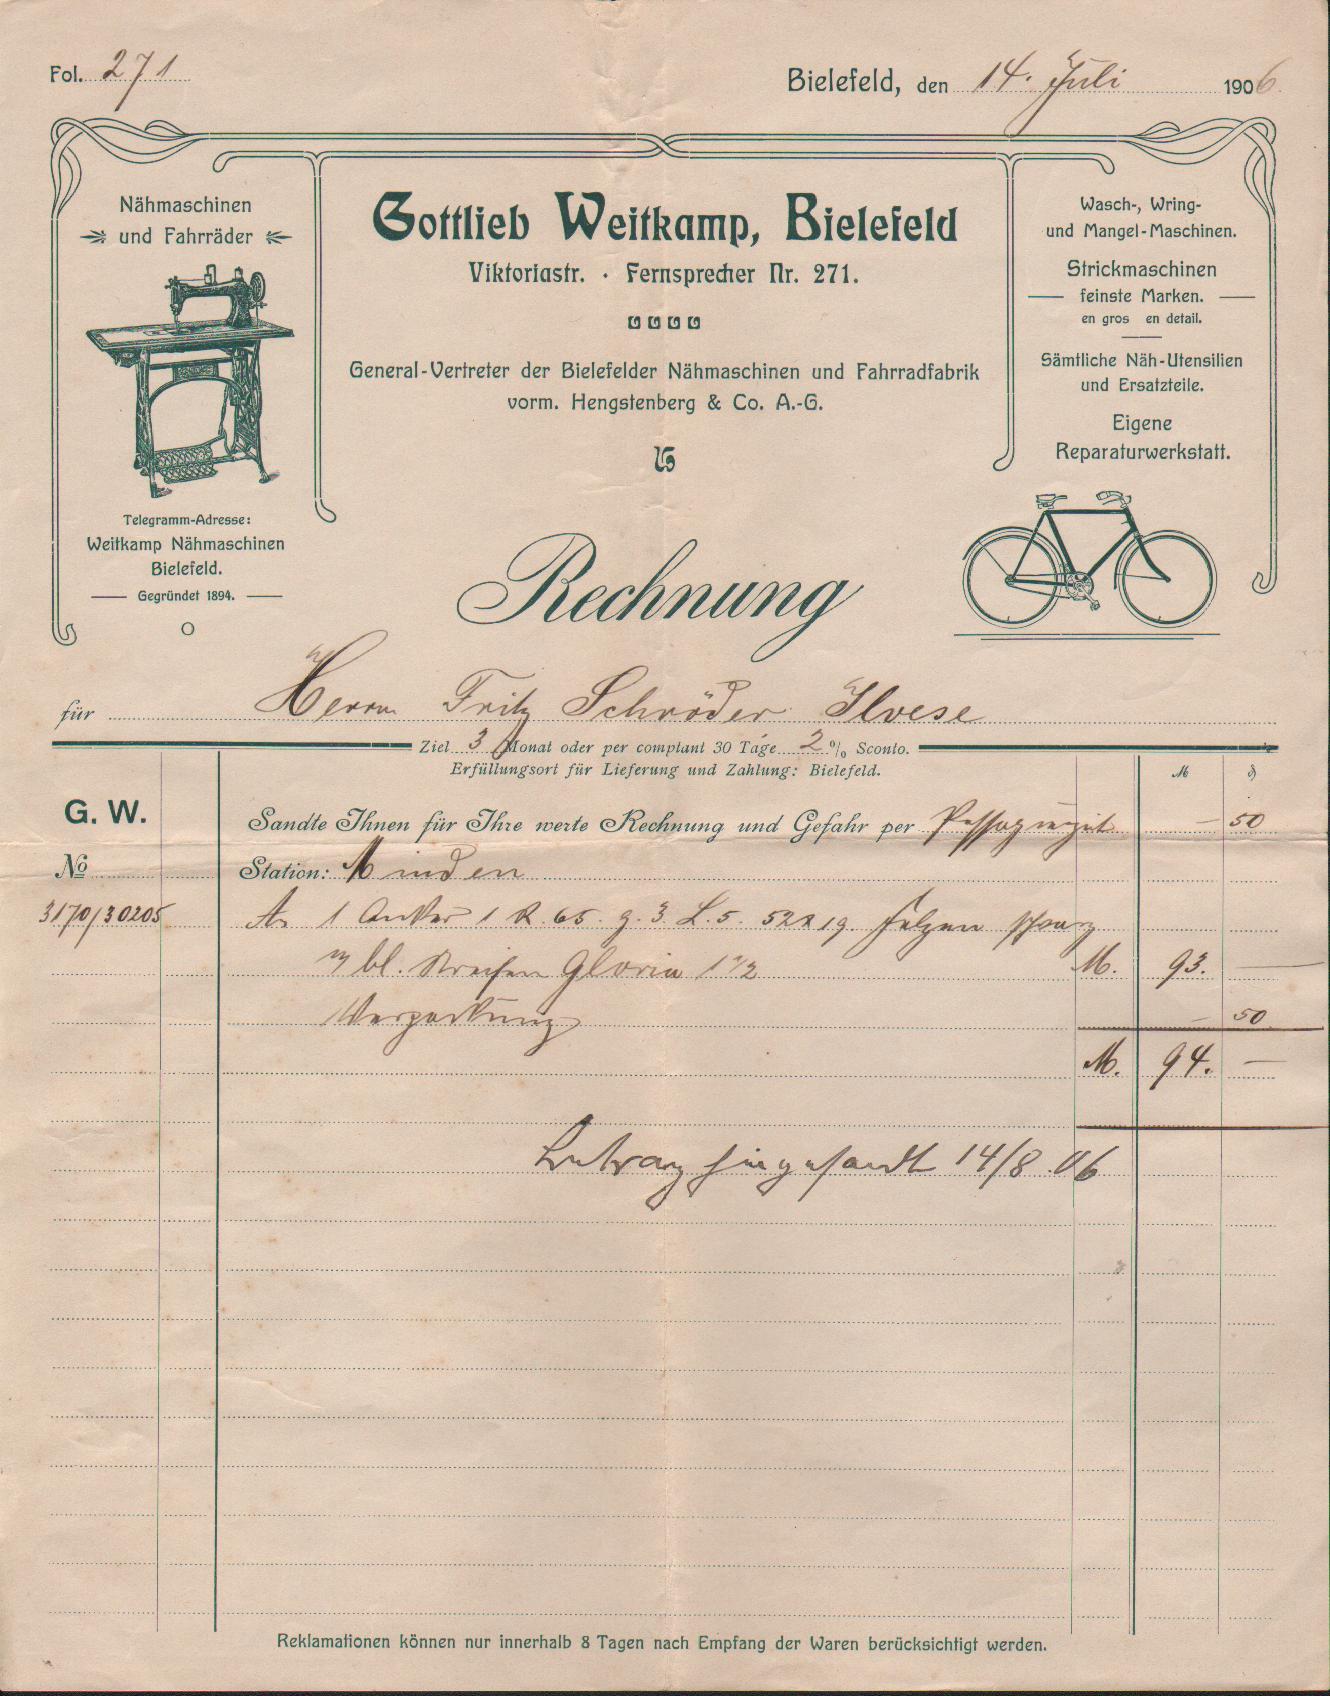 Fol. 271
Bielefeld, den 14. Juli 1906
Nähmaschinen
und Fahrräder
Telegramm-Adresse:
Weitkamp Nähmaschinen
Bielefeld.
Gegründet 1894.
Gottlieb Weitkamp, Bielefeld
Viktoriastr. · Fernsprecher Nr. 271.
General-Vertreter der Bielefelder Nähmaschinen und Fahrradfabrik
vorm. Hengstenberg & Co. A.-G.
Wasch-, Wring-
und Mangel-Maschinen.
Strickmaschinen
feinste Marken.
en gros en detail.
Sämtliche Näh-Utensilien
und Ersatzteile.
Eigene
Reparaturwerkstatt.
Rechnung
für Herrn Fritz Schröder Ilvese
Ziel 3 Monat oder per comptant 30 Tage 2 % Sconto.
Erfüllungsort für Lieferung und Zahlung: Bielefeld.
M ₰
G. W.
Sandte Ihnen für Ihre werte Rechnung und Gefahr per — 50
No Station: Minden
3170/30205 1 Anker 1 R. 65. g. 3. L. 5. 52x19 Felgen schwarz
m bl. Streifen Gloria 1 1/2 M. 93. —
Verpackung — 50
M. 94. —
Betrag eingesandt 14/8 06
Reklamationen können nur innerhalb 8 Tagen nach Empfang der Waren berücksichtigt werden.